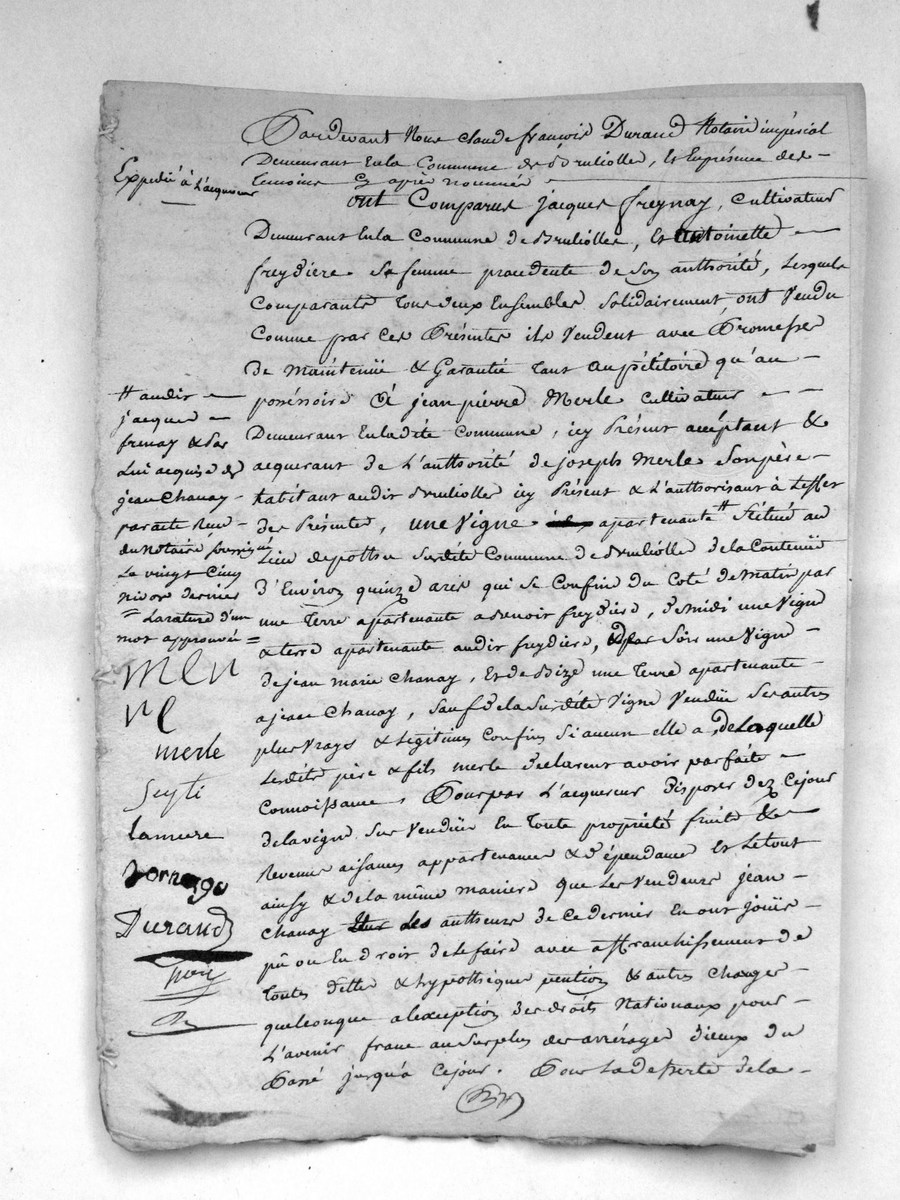 Pardevant Nous Claude françois Durand Notaire impérial
Demeurant En la Commune de Brulliolles, Et En présence des
temoins cy après nommés
ont Comparus jacques freynay, Cultivateur
Demeurant En la Commune de Brulliolles, Et Antoinette
freydiere Sa femme procedente de Son authorité, Lesquels
Comparants tous deux Ensembles Solidairement, ont Vendu
Comme par Ces Présentes ils Vendent avec Promesses
de Maintenüe & Garantie tant au pétitoire qu'au
posséssoire à jean pierre Merle Cultivateur
Demeurant En la dite Commune, icy Présent acceptant &
acquerant de L'authorité de joseph Merle Son père
habitant audit Brulliolles icy Présent & L'authorisant à L'effet
des Présentes, une Vigne apartenante # Scituée au
Lieu de pottu Susdite Commune de Brulliolles de la Contenüe
d'Environ quinze ares qui Se Confine du Coté de Matin par
une Terre apartenante a benoit freydiere, de Midi une Vigne
& terre apartenante audit freydiere, de Soir une Vigne
de jean marie Chanay, Et de Bize une Terre apartenante
a jean Chanay, Sauf de la Susdite Vigne Vendüe Ses autres
plus Vrays & Légitimes Confins Si aucun elle a de Laquelle
Lesdits père & fils merle declarent avoir parfaite
Connoissance, Pour par L'acquereur disposer dez Cejour
de la vigne Sus Vendüe En toute propriété fruits &
Revenus aisances appartenances & Dépendances Et Letout
ainsy & de la même maniere que Les Vendeurs jean
Chanay Et Les autheurs de Ce dernier En ont joüir
pû ou En droit de Le faire avec affranchissement de
Toutes dettes & hypothèques pention & autres Charges
quelconque a L'exception des droits Nationaux pour
L'avenir franc au Surplus des arrérages d'iceux du
Passé jusqu'à Cejour. Pour La deSserte de la
Expedié à L'acquereur
# audit
jacques
frenay & Par
Lui acquise de
jean Chanay
par acte Reçu
du Notaire soussigné
Le vingt Cinq
nivose dernier
= La rature d'un
mot approuvée =
merle
Seyti
Lamure
Durand